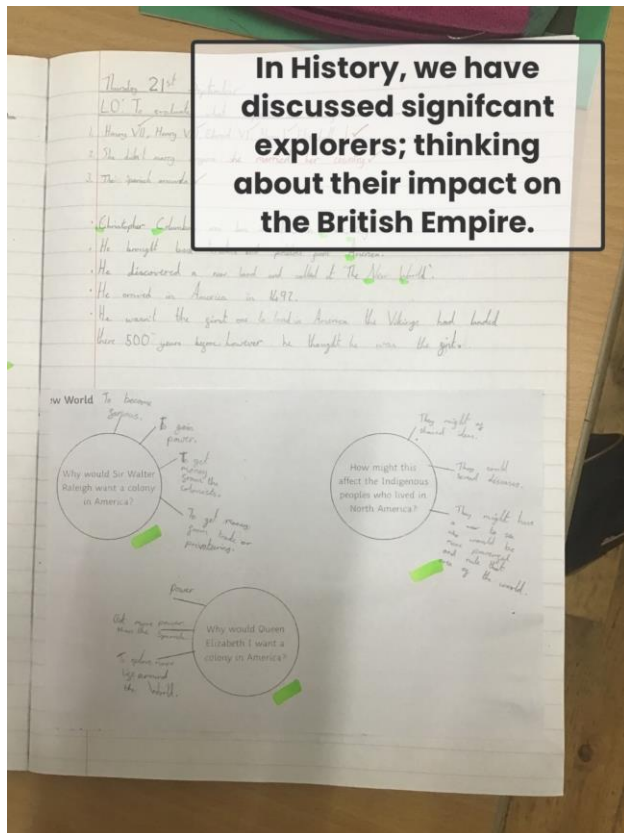 In History, we have
discussed signifcant
explorers; thinking
about their impact on
the British Empire.
Thursday 21st
LO: To evaluate
1. Henry VII, Henry
2. She didn't marry
3. The Spanish armada
• Christopher
• He brought
• He discovered a new land and called it "The New World".
• He arrived in America in 1492.
• He wasn't the first one to land in America the Vikings had landed
there 500 years before however he thought he was the first.
w World
To become
famous.
To gain
power.
To get
money
from the
colonists.
To get money
from trade or
privateering.
Why would Sir Walter
Raleigh want a colony
in America?
They might of
shared
They could
spread diseases.
They might have
a war to see
who would be
more powerful
and rule that
of the world.
How might this
affect the Indigenous
peoples who lived in
North America?
Power
Get more power
than the Spanish
To
around
the World.
Why would Queen
Elizabeth I want a
colony in America?